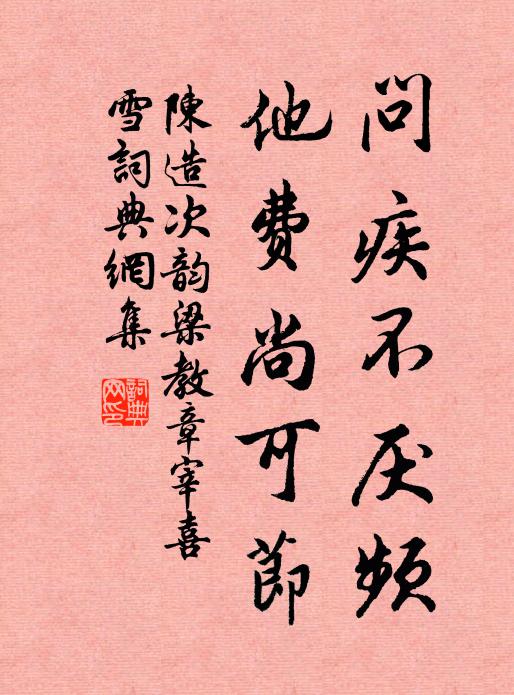 問疾不厌頻
他費尚可節
陳造次韵梁教章宰喜
雪詞典網集
詞典
网印